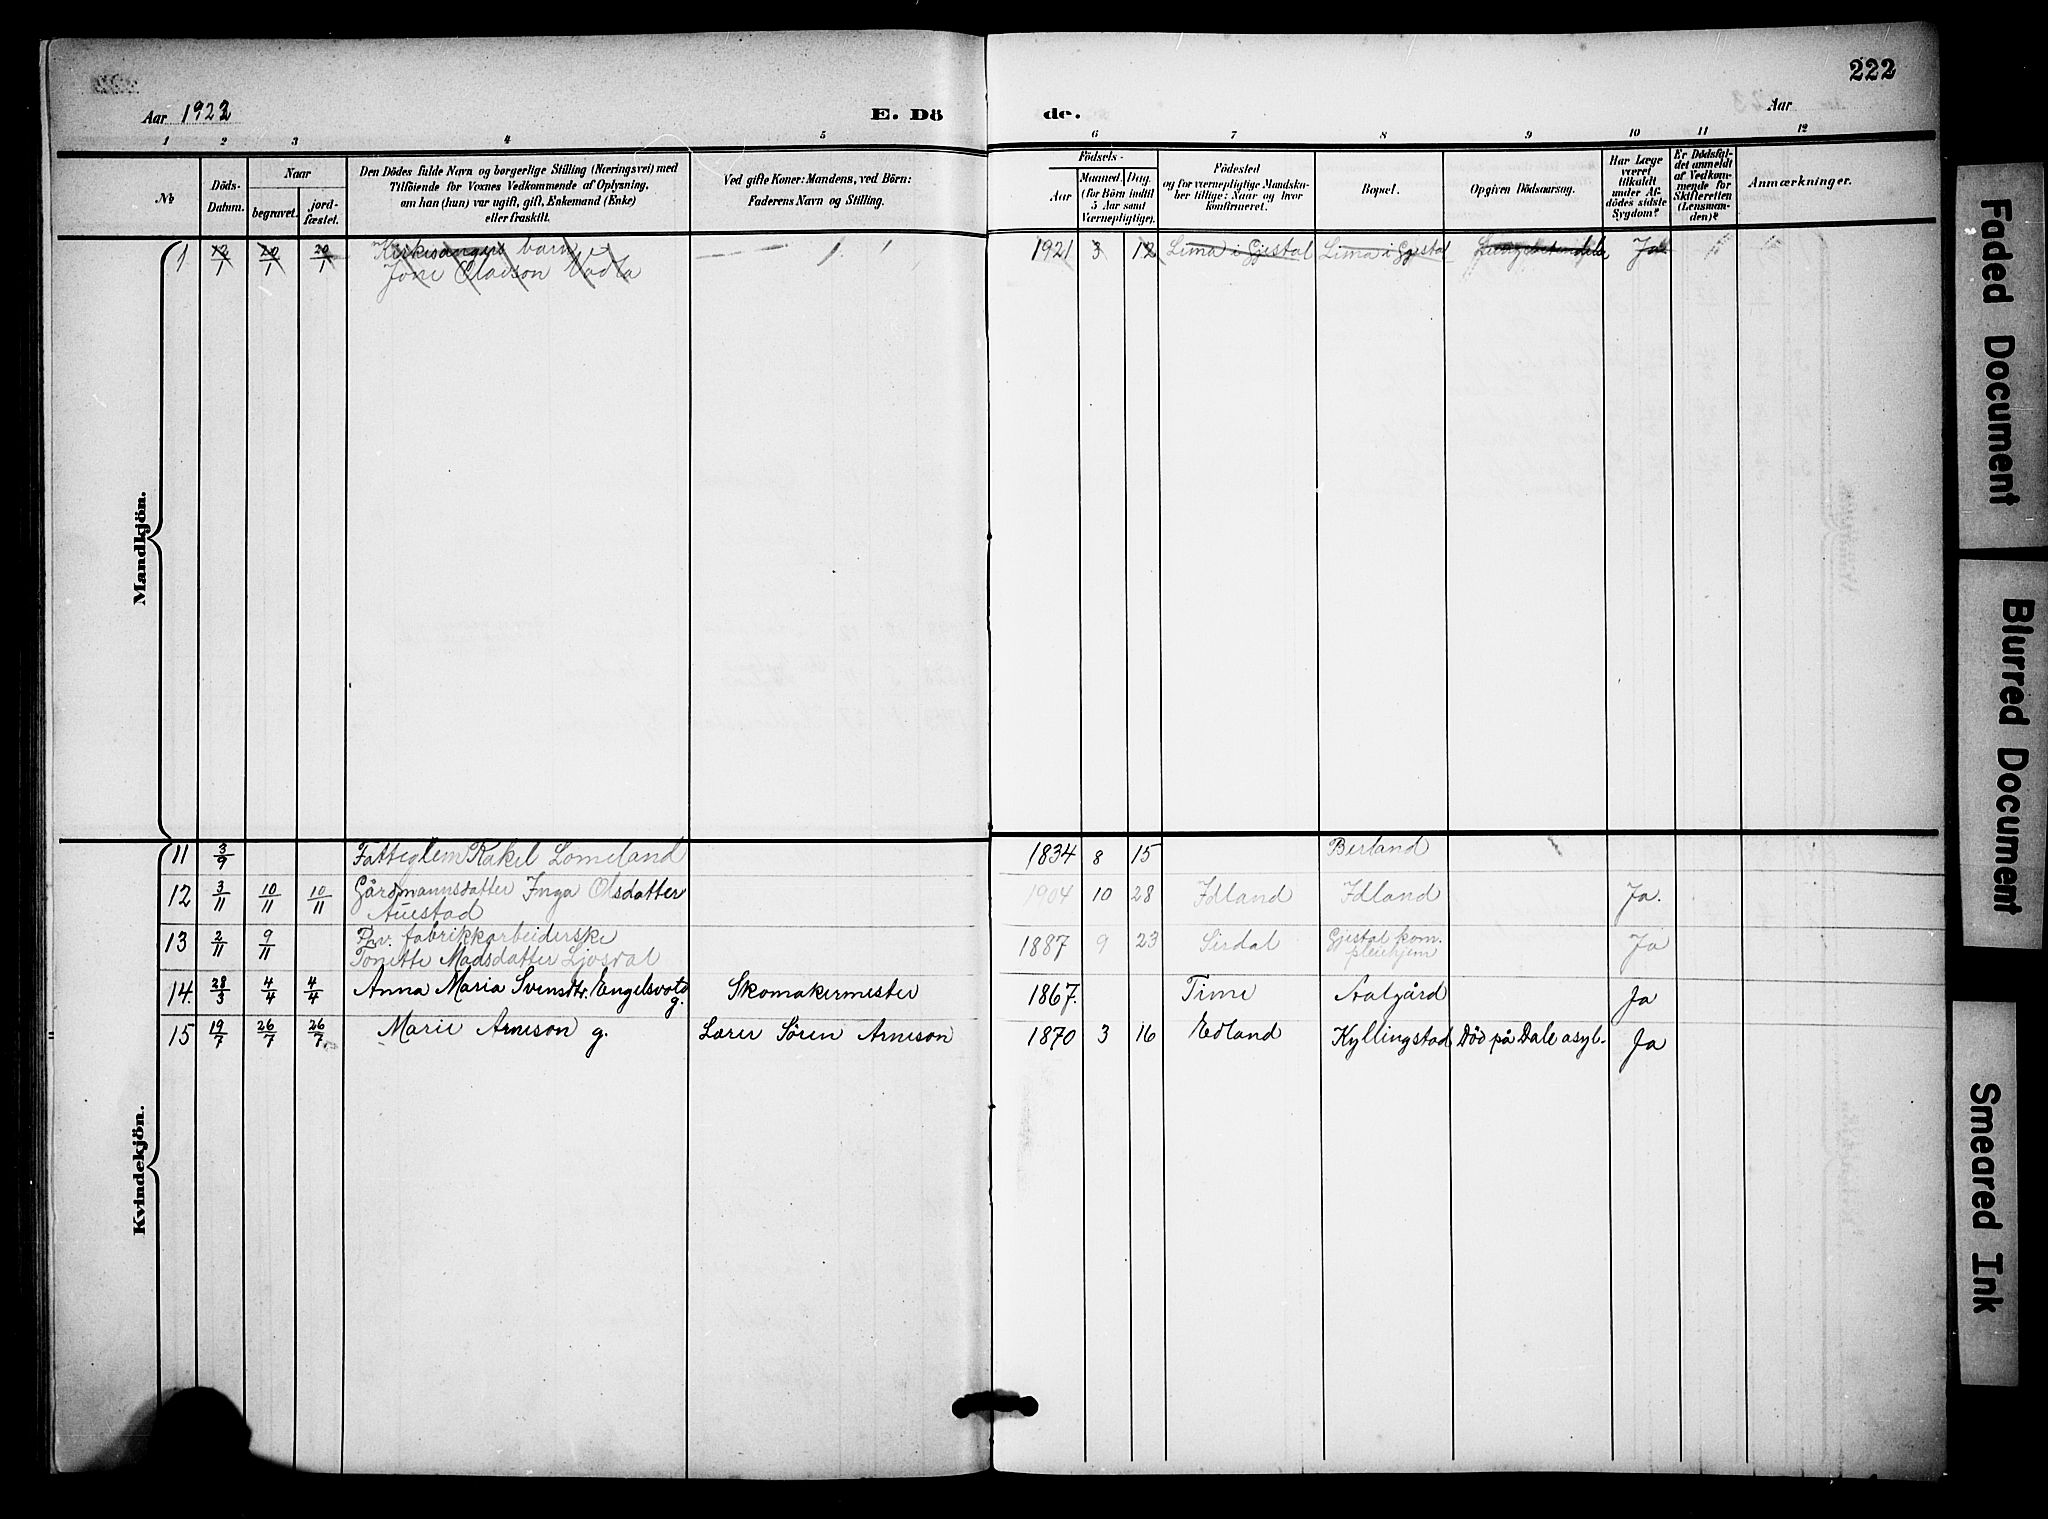 222
Aar 1922 E. Dö
de. Aar
1 2 3 4 5
6 7 8 9 10 11 12
№
Döds-
Datum.
Naar
begravet.
jord-
fæstet.
Den Dödes fulde Navn og borgerlige Stilling (Næringsvei) med
Tilföiende for Voxnes Vedkommende af Oplysning,
om han (hun) var ugift, gift, Enkemand (Enke)
eller fraskilt.
Ved gifte Koner: Mandens, ved Börn:
Faderens Navn og Stilling.
Födsels-
Aar
Maaned. Dag.
(for Börn indtil
5 Aar samt
Værnepligtige).
Födested
og for værnepligtige Mandska-
ber tillige: Naar og hvor
konfirmeret.
Bopæl.
Opgiven Dödsaarsag.
Har Læge
været
tilkaldt
under Af-
dödes sidste
Sygdom?
Er Dödsfal-
det anmeldt
af Vedkom-
mende for
Skifteretten
(Lensman-
den)?
Anmærkninger.
Mandkjön.
1 12/1 20/1 20/1 Kirkesangers barn 1921 3 12 Lima i Gjestal Lima i Gjestal Ja
Jone Olavson Vadla
Kvindekjön.
11 3/9 Fattiglem Rakel Lomeland 1834 8 15 Berland
12 3/11 10/11 10/11 Gårdmannsdatter Inga Olsdatter 1904 10 28 Idland Idland Ja.
Auestad
13 2/11 9/11 Prv. fabrikkarbeiderske 1887 9 23 Sirdal Gjestal kom. Ja
Tonette Madsdatter Ljosdal pleiehjem
14. 28/3 4/4 4/4 Anna Maria Svensdtr. Engelsvold g. Skomakermester 1867. Time Aalgård Ja
15 19/7 26/7 26/7 Marie Arneson g. Lærer Sören Arneson 1870 3 16 Edland Kyllingstad Död på Dale asyl. Ja
Faded Document
Blurred Document
Smeared Ink